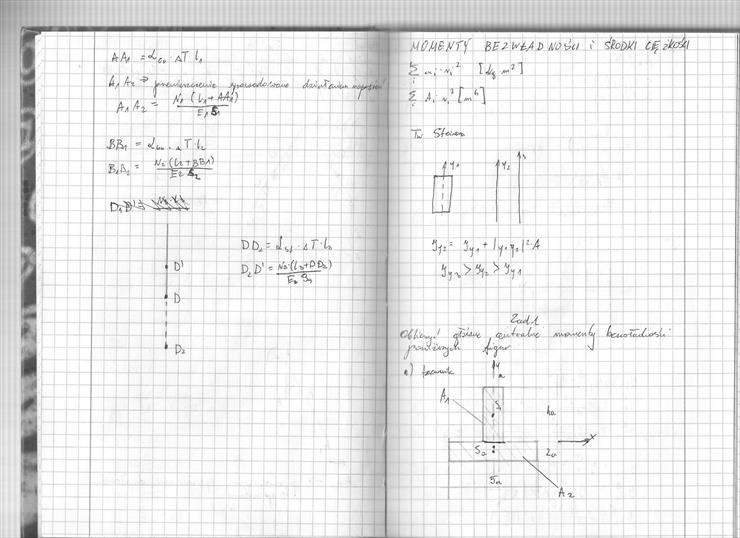 AA₁ = α_cu · ΔT · l₁
A₁A₂ → przemieszczenie spowodowane działaniem naprężeń
A₁A₂ = N₁(l₁+AA₁) / E₁S₁
BB₁ = α_cu · ΔT · l₂
B₁B₂ = N₂(l₂+BB₁) / E₂S₂
D'
D
D₂
DD₂ = α_st · ΔT · l₃
D₂D' = N₃·(l₃+DD₂) / E₃S₃
MOMENTY BEZWŁADNOŚCI i ŚRODKI CIĘŻKOŚCI
Σ mᵢ·rᵢ² [kg·m²]
Σ Aᵢ·rᵢ² [m⁴]
Tw Steinera
y₁ y₂ y₃
J_y₂ = J_y₁ + |y₁y₂|²·A
J_y₃ > J_y₂ > J_y₁
Zad.1
Obliczyć główne centralne momenty bezwładności
poniższych figur
a) teownik
y
a
A₁
S₁
4a
S₂
x
2a
5a
A₂